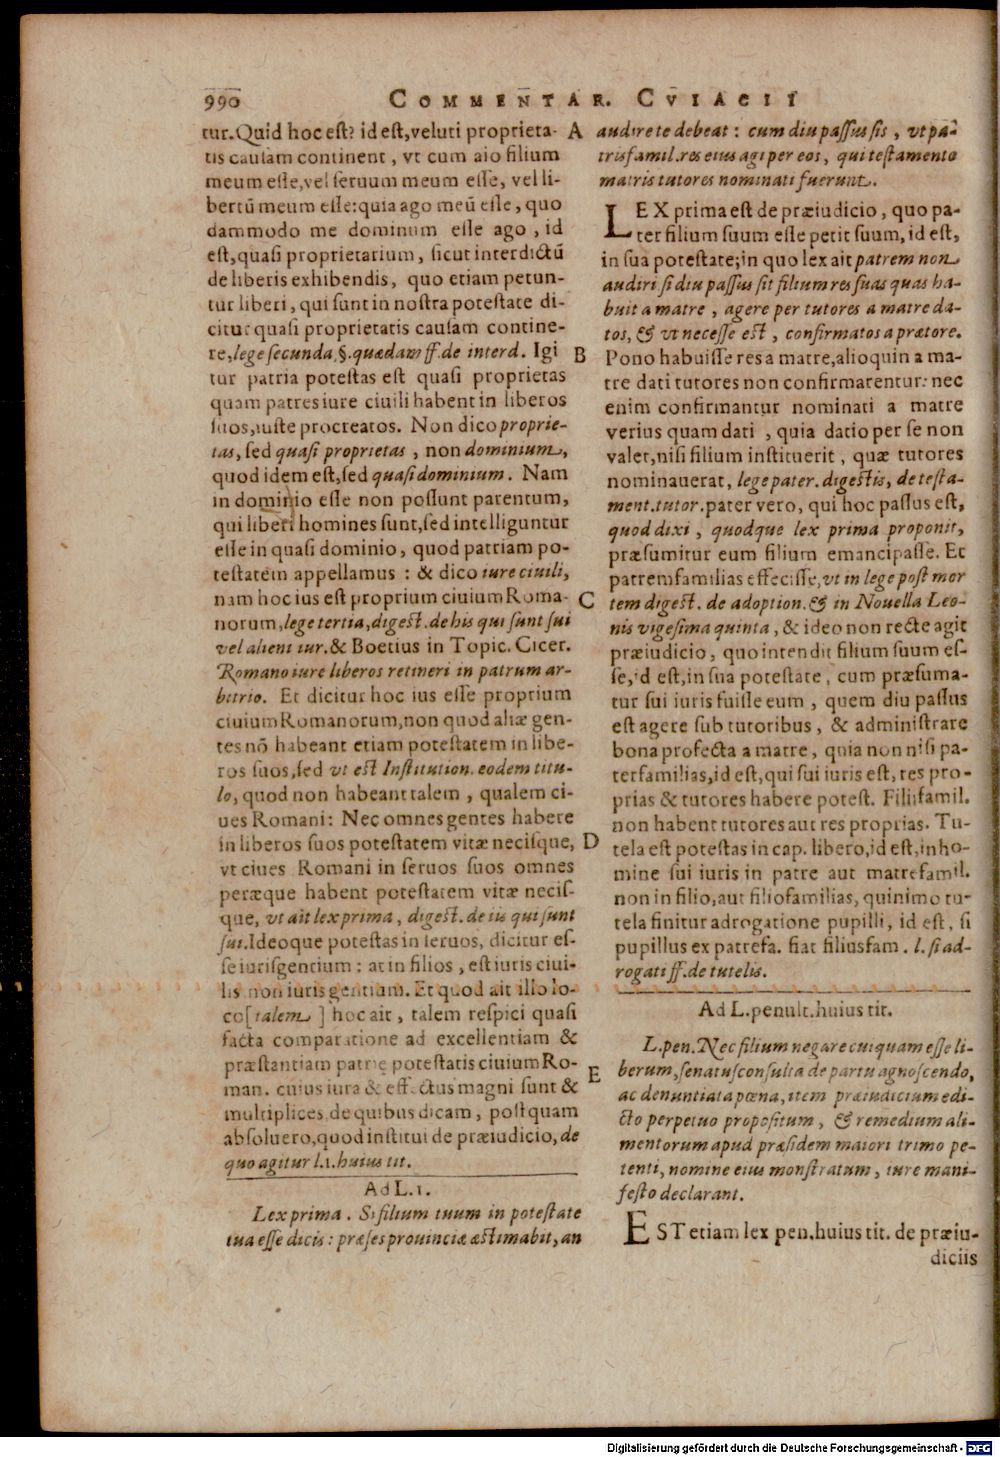 990 COMMENTAR. CVIACII
tur. Quid hoc est? id est, veluti proprieta-
tis causam continent, vt cum aio filium
meum esse, vel seruum meum esse, vel li-
bertū meum esse: quia ago meū esse, quo
dammodo me dominum esse ago, id
est, quasi proprietarium, sicut interdictū
de liberis exhibendis, quo etiam petun-
tur liberi, qui sunt in nostra potestate di-
citur quasi proprietatis causam contine-
re, lege secunda, §. quædam ff. de interd. Igi
tur patria potestas est quasi proprietas
quam patres iure ciuili habent in liberos
suos, iuste procreatos. Non dico proprie-
tas, sed quasi proprietas, non dominium,
quod idem est, sed quasi dominium. Nam
in dominio esse non possunt parentum,
qui liberi homines sunt, sed intelliguntur
esse in quasi dominio, quod patriam po-
testatem appellamus: & dico iure ciuili,
nam hoc ius est proprium ciuium Roma-
norum, lege tertia, digest. de his qui sunt sui
vel alieni iur. & Boetius in Topic. Cicer.
Romano iure liberos retineri in patrum ar-
bitrio. Et dicitur hoc ius esse proprium
ciuium Romanorum, non quod aliæ gen-
tes nō habeant etiam potestatem in libe-
ros suos, sed vt est Institution. eodem titu-
lo, quod non habeant talem, qualem ci-
ues Romani: Nec omnes gentes habere
in liberos suos potestatem vitæ necisque,
vt ciues Romani in seruos suos omnes
peræque habent potestatem vitæ necis-
que, vt ait lex prima, digest. de iis qui sunt
sui. Ideoque potestas in seruos, dicitur es-
se iurisgentium: at in filios, est iuris ciui-
lis non iuris gentium. Et quod ait illo lo-
co [talem] hoc ait, talem respici quasi
facta comparatione ad excellentiam &
præstantiam patrię potestatis ciuium Ro-
man. cuius iura & effectus magni sunt &
multiplices de quibus dicam, postquam
absoluero, quod institui de præiudicio, de
quo agitur l. 1. huius tit.
Ad L. 1.
Lex prima. Si filium tuum in potestate
tua esse dicis: præses prouinciæ æstimabit, an
A
B
C
D
E
audire te debeat: cum diu passus sis, vt pa-
trisfamil. res eius agi per eos, qui testamento
matris tutores nominati fuerunt.
LEX prima est de præiudicio, quo pa-
ter filium suum esse petit suum, id est,
in sua potestate; in quo lex ait patrem non
audiri si diu passus sit filium res suas quas ha-
buit a matre, agere per tutores a matre da-
tos, & vt necesse est, confirmatos a prætore.
Pono habuisse res a matre, alioquin a ma-
tre dati tutores non confirmarentur: nec
enim confirmantur nominati a matre
verius quam dati, quia datio per se non
valet, nisi filium instituerit, quæ tutores
nominauerat, lege pater. digestis, de testa-
ment. tutor. pater vero, qui hoc passus est,
quod dixi, quodque lex prima proponit,
præsumitur eum filium emancipasse. Et
patremfamilias effecisse, vt in lege post mor
tem digest. de adoption. & in Nouella Leo-
nis vigesima quinta, & ideo non recte agit
præiudicio, quo intendit filium suum es-
se, id est, in sua potestate, cum præsuma-
tur sui iuris fuisse eum, quem diu passus
est agere sub tutoribus, & administrare
bona profecta a matre, quia non nisi pa-
terfamilias, id est, qui sui iuris est, res pro-
prias & tutores habere potest. Filiifamil.
non habent tutores aut res proprias. Tu-
tela est potestas in cap. libero, id est, in ho-
mine sui iuris in patre aut matrefamil.
non in filio, aut filiofamilias, quinimo tu-
tela finitur adrogatione pupilli, id est, si
pupillus ex patrefa. fiat filiusfam. l. si ad-
rogati ff. de tutelis.
Ad L. penult. huius tit.
L. pen. Nec filium negare cuiquam esse li-
berum, senatusconsulta de partu agnoscendo,
ac denuntiata pœna, item præiudicium edi-
cto perpetuo propositum, & remedium ali-
mentorum apud præsidem maiori trimo pe-
tenti, nomine eius monstratum, iure mani-
festo declarant.
EST etiam lex pen. huius tit. de præiu-
diciis
Digitalisierung gefördert durch die Deutsche Forschungsgemeinschaft - DFG